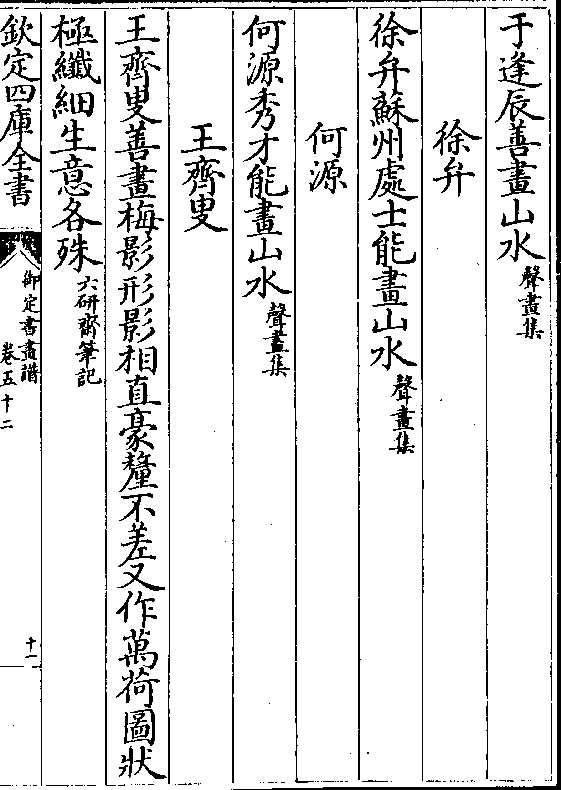 于逢辰善畫山水聲畫集
徐弁
徐弁蘇州處士能畫山水聲畫集
何源
何源秀才能畫山水聲畫集
王齊叟
王齊叟善畫梅影形影相直豪釐不差又作萬荷圖狀
極纖細生意各殊六研齋筆記
欽定四庫全書
御定書畫譜
卷五十二
十一